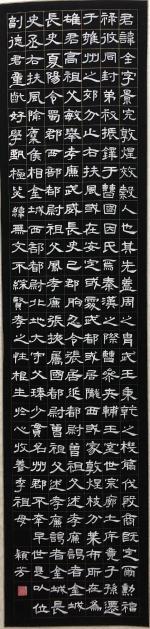 君諱全字景完敦煌效穀人也其先蓋周之胄武王秉乾之機翦伐殷商既定爾勳福
祿攸同封弟叔振鐸于曹國因氏焉秦漢之際曹參夾輔王室世宗廓土斥竟子孫遷
于雍州之郊分止右扶風或在安定或處武都或居隴西或家敦煌枝分葉布所在為
雄君高祖父敏舉孝廉武威長史巴郡朐忍令張掖居延都尉曾祖父述孝廉謁者金城長
史夏陽令蜀郡西部都尉祖父鳳孝廉張掖屬國都尉
丞右扶風隃麋侯相金城西部都尉北地大守父琫少貫名州郡不幸早世是以位
副德君童齔好學甄極毖緯無文不綜賢孝之性根生於心收養季祖母 穎芳